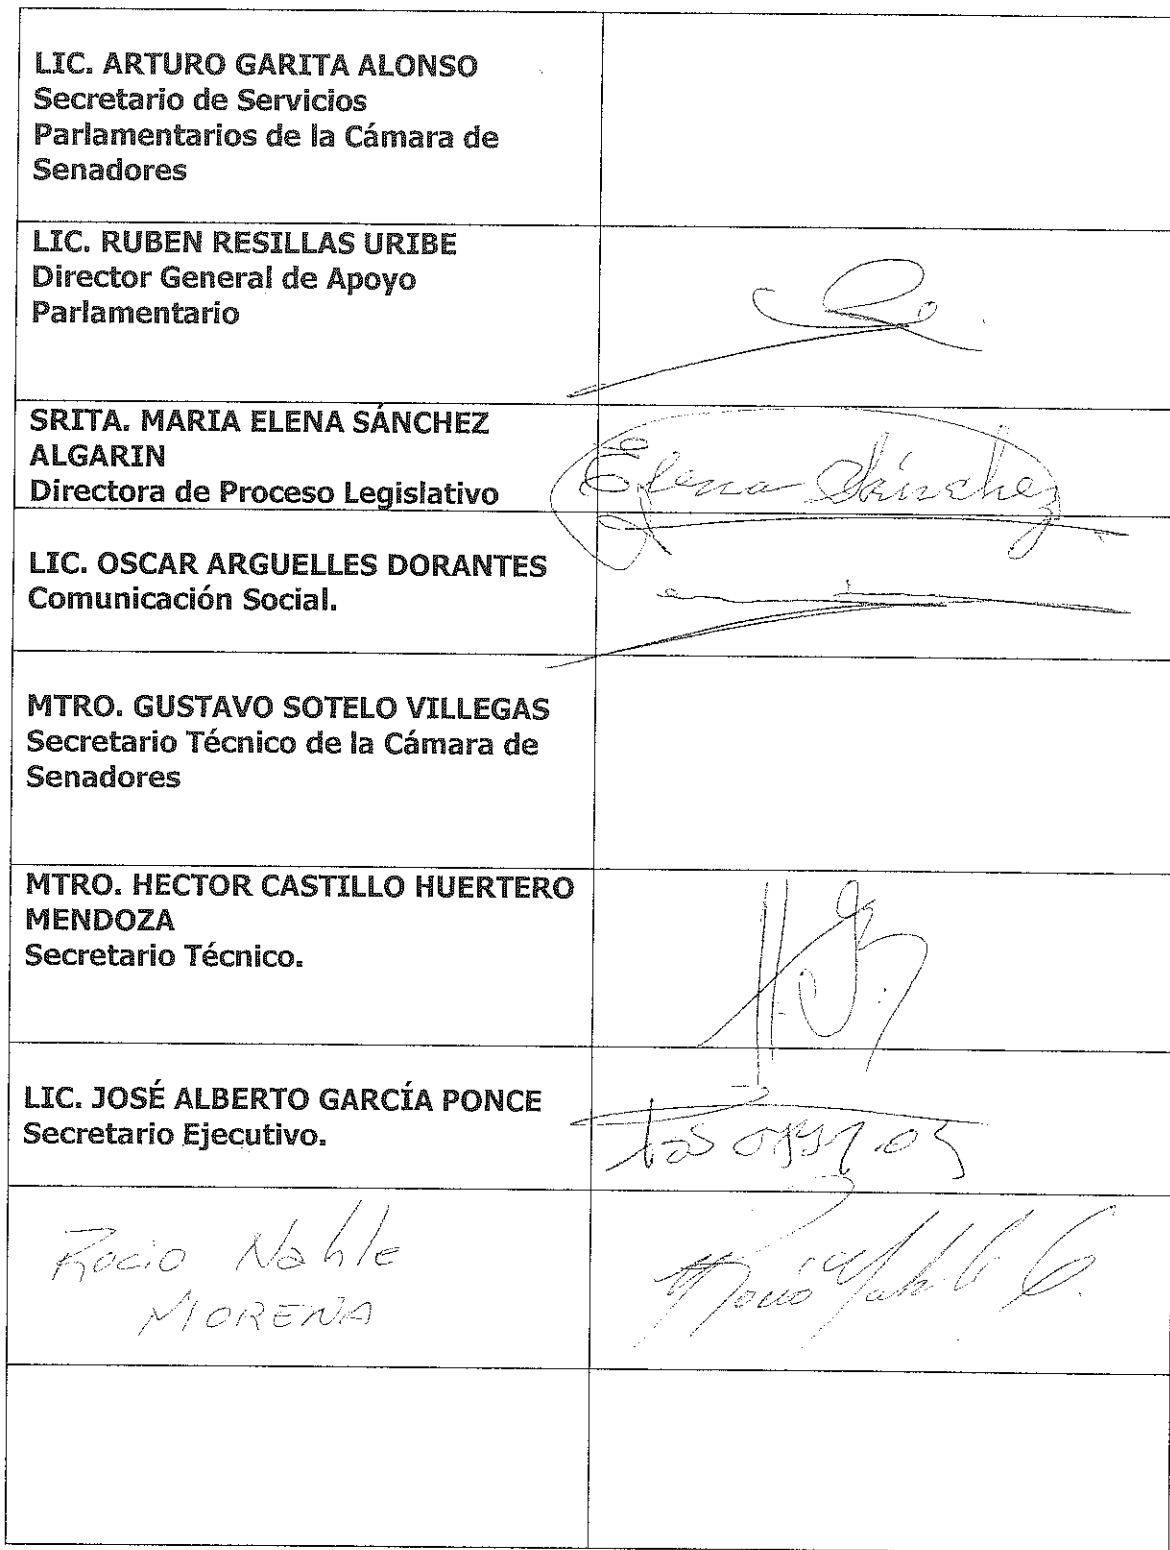 LIC. ARTURO GARITA ALONSO
Secretario de Servicios
Parlamentarios de la Cámara de
Senadores
LIC. RUBEN RESILLAS URIBE
Director General de Apoyo
Parlamentario
SRITA. MARIA ELENA SÁNCHEZ
ALGARIN
Directora de Proceso Legislativo
Elena Sánchez
LIC. OSCAR ARGUELLES DORANTES
Comunicación Social.
MTRO. GUSTAVO SOTELO VILLEGAS
Secretario Técnico de la Cámara de
Senadores
MTRO. HECTOR CASTILLO HUERTERO
MENDOZA
Secretario Técnico.
LIC. JOSÉ ALBERTO GARCÍA PONCE
Secretario Ejecutivo.
Rocio Nahle
MORENA
Rocio Nahle G.